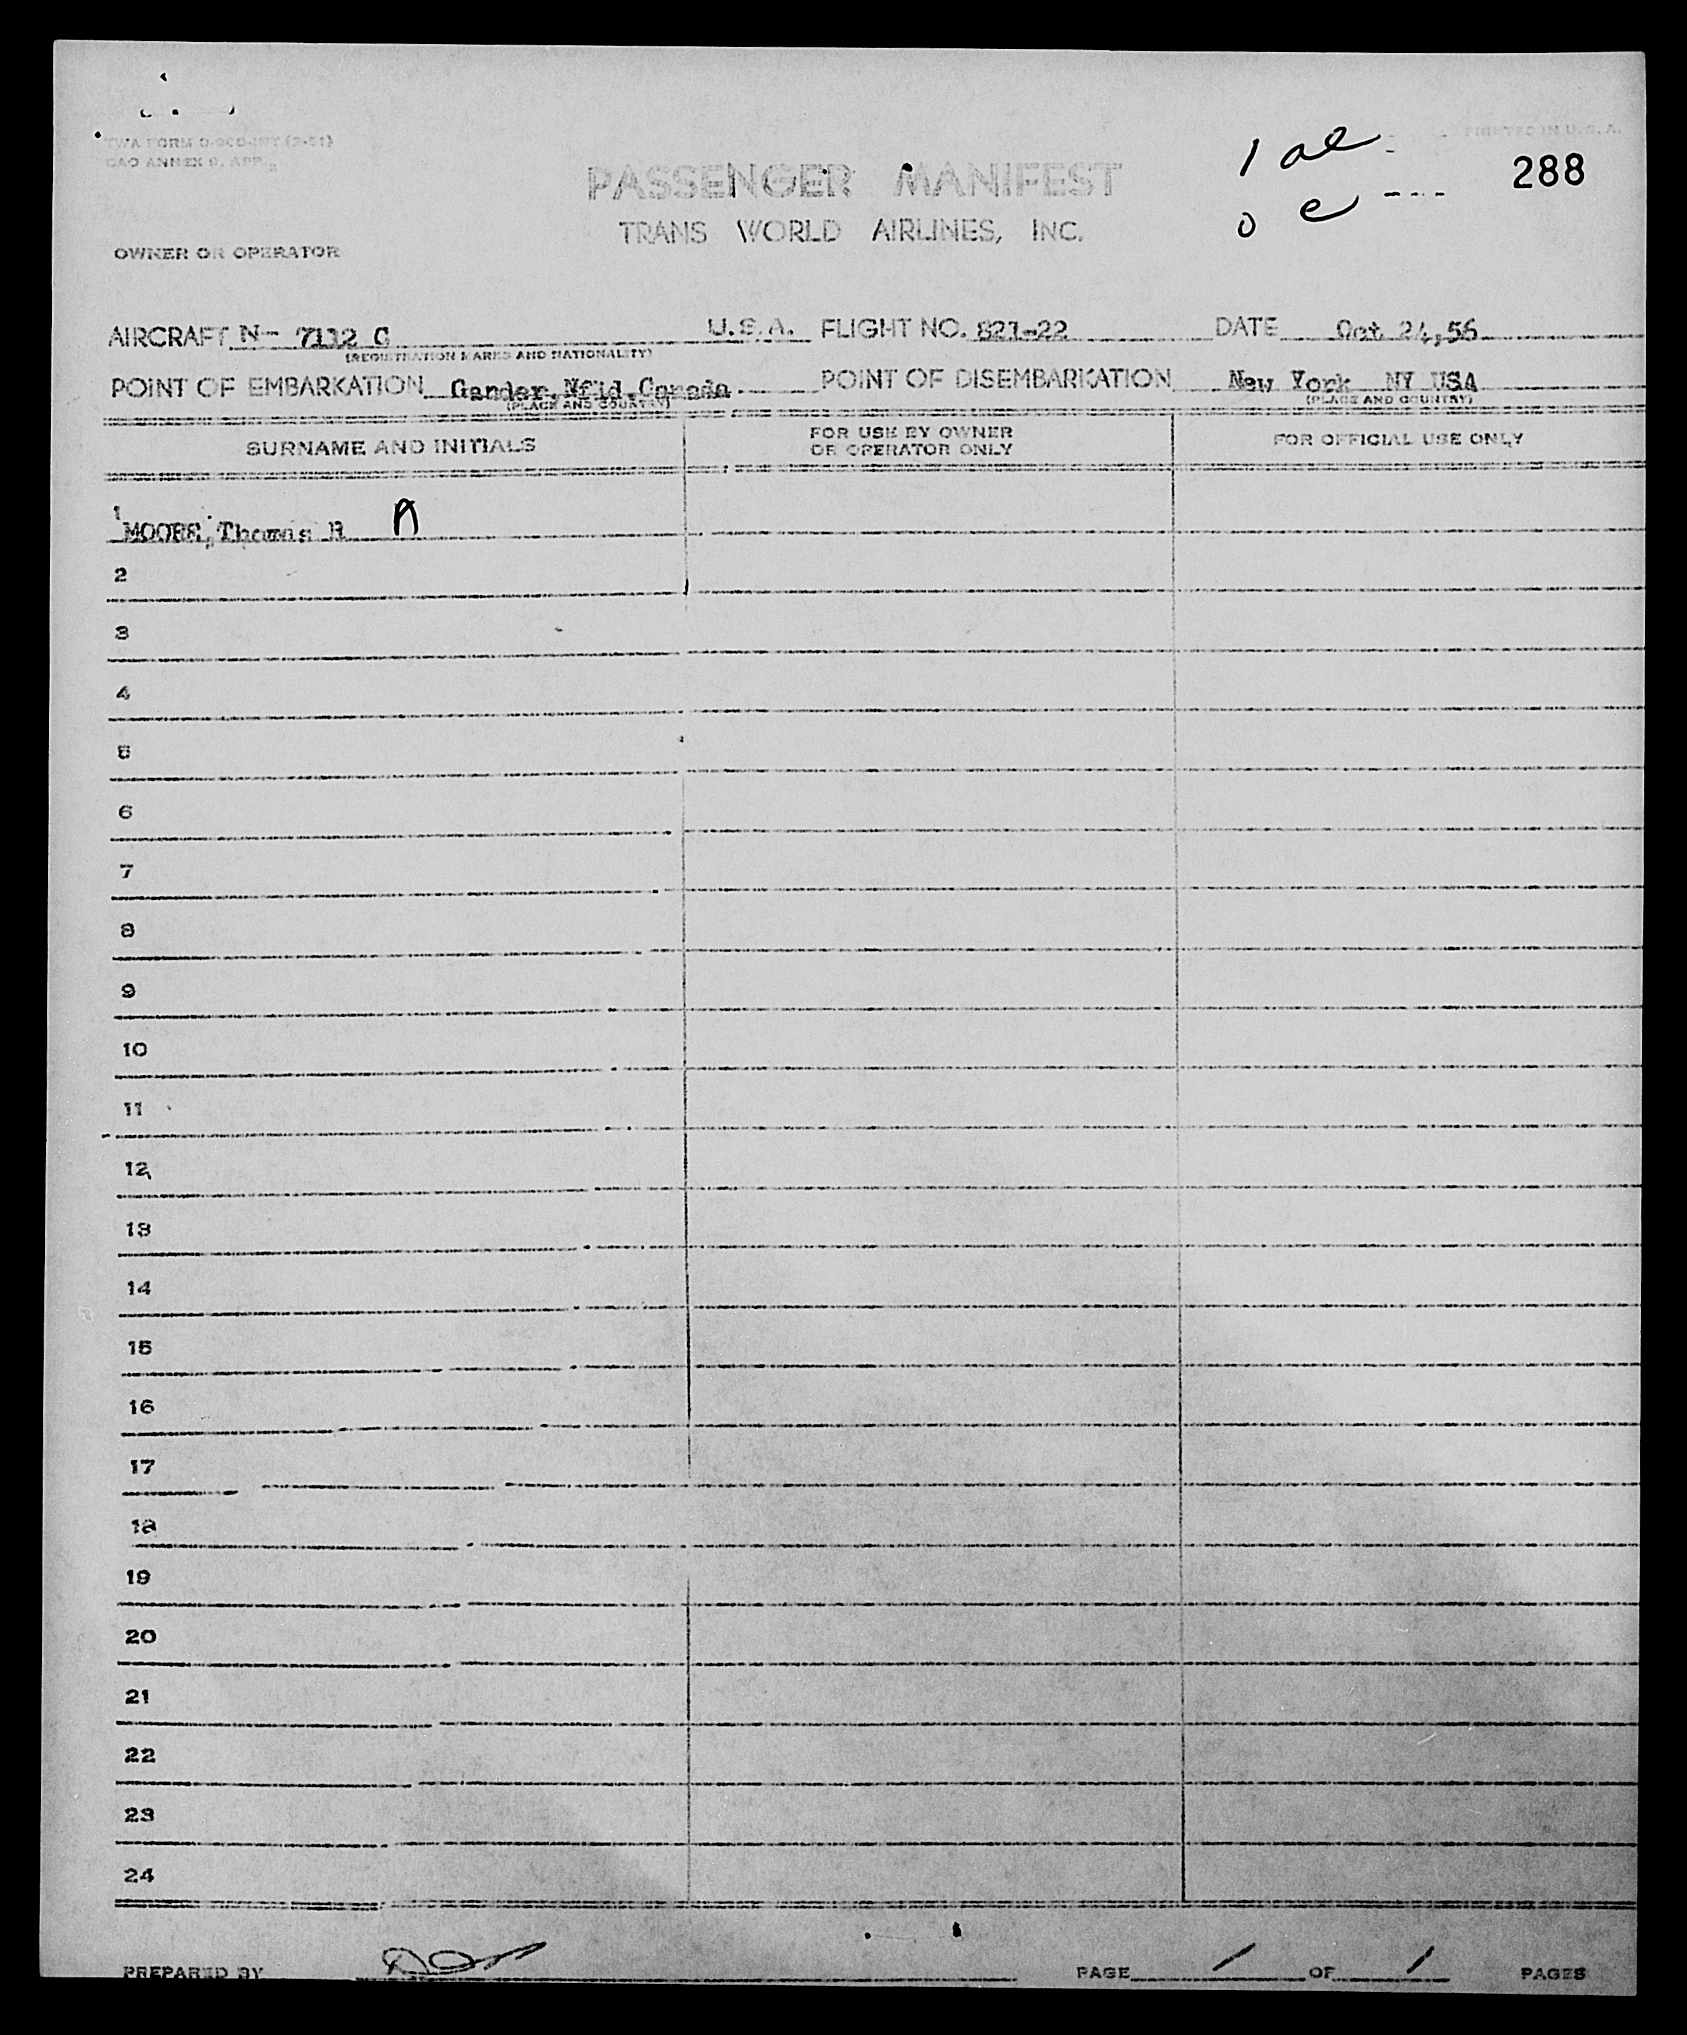 PRINTED IN U.S.A.
1 ac
288
PASSENGER MANIFEST
0 e
TRANS WORLD AIRLINES, INC.
OWNER OR OPERATOR
AIRCRAFT N- 7112 C U.S.A. FLIGHT NO. 821-22 DATE Oct 24,56
(REGISTRATION MARKS AND NATIONALITY)
POINT OF EMBARKATION Gander, Nfld, Canada POINT OF DISEMBARKATION New York NY USA
(PLACE AND COUNTRY) (PLACE AND COUNTRY)
SURNAME AND INITIALS FOR USE BY OWNER OR OPERATOR ONLY FOR OFFICIAL USE ONLY
1 MOORE, Thomas A
2
3
4
5
6
7
8
9
10
11
12
13
14
15
16
17
18
19
20
21
22
23
24
PREPARED BY PAGE 1 OF 1 PAGES